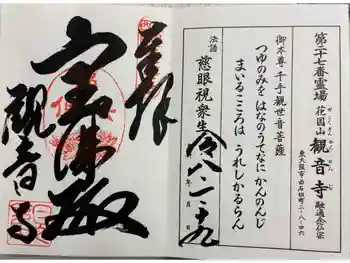 第二十七番霊場
花園山 観音寺 融通念仏宗
東大阪市
御本尊 千手観世音菩薩
つゆのみを はなのうてなに かんのんじ
まいるこころは うれしかるらん
法語 慈眼視衆生
令八・一・二九
年 月 日
奉拝
観音寺